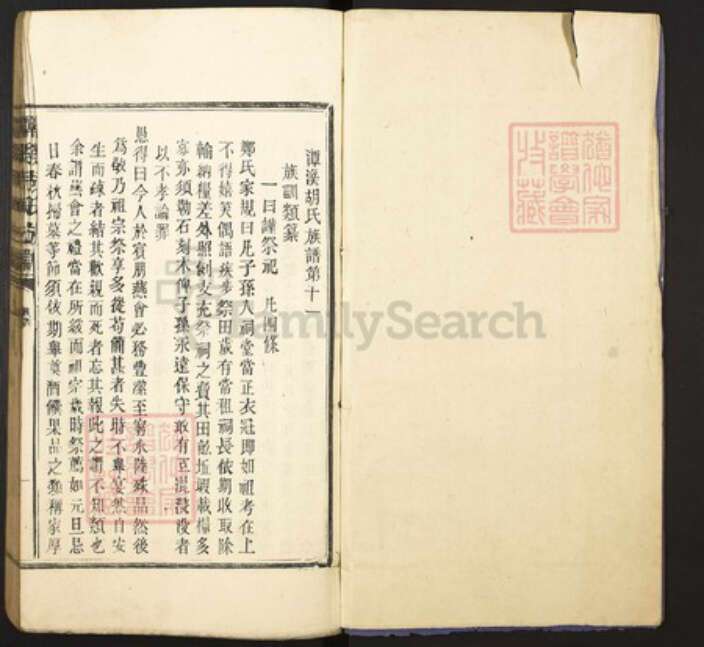 潭溪胡氏族譜第十一
族訓類纂
一曰謹祭祀 凡四條
鄭氏家規曰凡子孫入祠堂當正衣冠即如祖考在上
不得嬉笑偶語疾步祭田歲有當租祠長依期收取除
輸納糧差外照例支充祭祠之費其田畝坵段載樣多
寡亦須勒石刻木俾子孫永遠保守敢有立混沒者
以不孝論罪
愚得曰今人於賓朋燕會必務豐潔至窮水陸殊品然後
為敬乃祖宗祭享多從苟簡甚者失時不舉宴然自安
生而疎者結其歡親而死者忘其報此之謂不知類也
余謂燕會之禮當在所緩而祖宗歲時祭薦如元旦忌
日春秋掃墓等節須依期舉奠酒饌果品之類稱家厚
FamilySearch